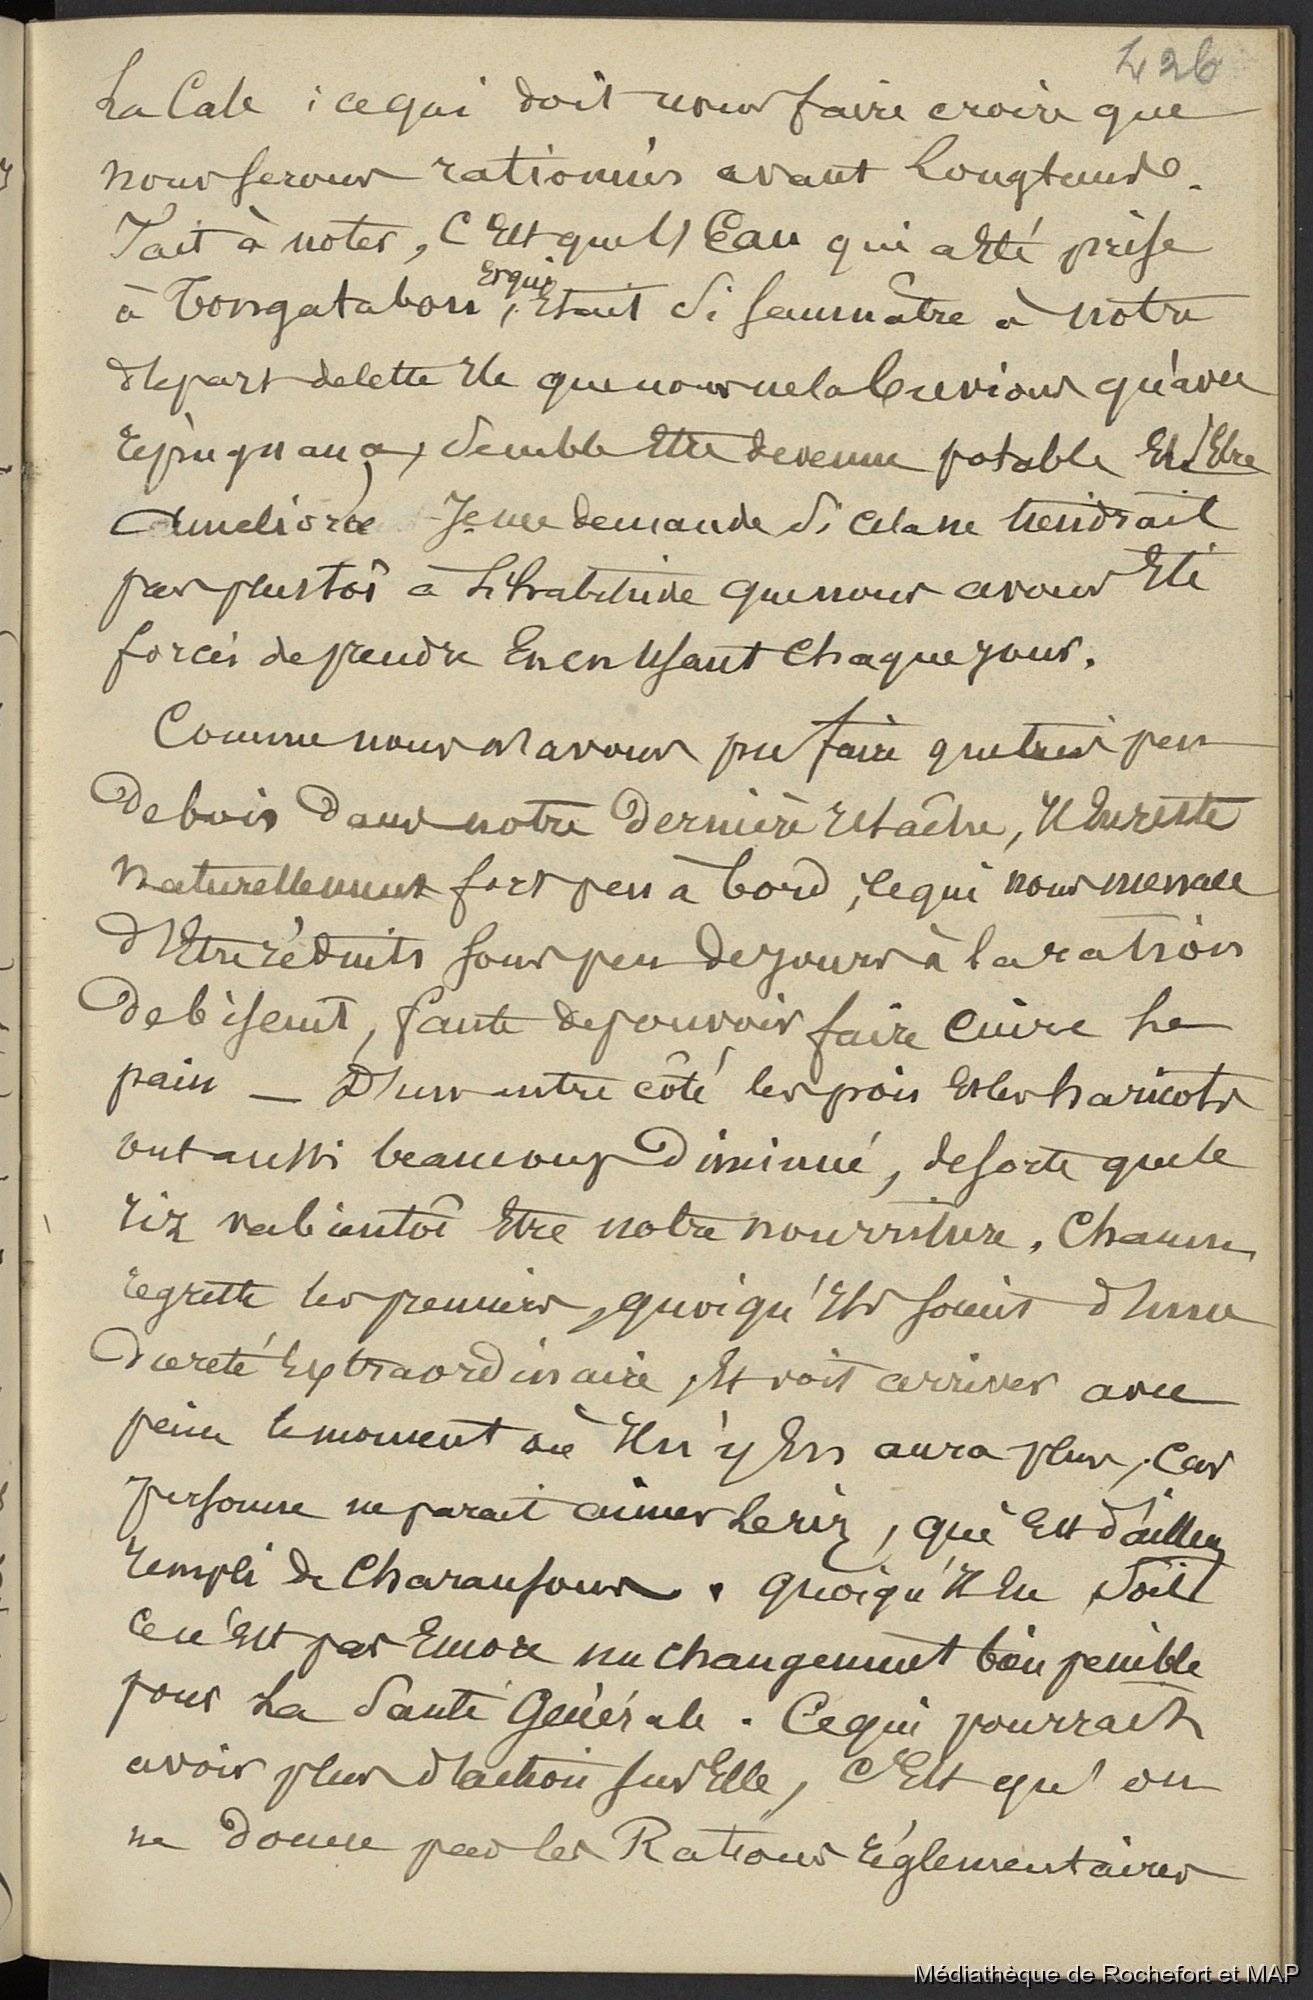 426
La Cale ; ce qui doit nous faire croire que
nous serons rationnés avant longtemps.
Fait à noter, C'Est que l'Eau qui a Eté prise
à Tongatabou, Et qui Etait si saumâtre à notre
départ de cette Ile que nous ne la buvions qu'avec
répugnance, semble Etre devenue potable Et s'Etre
améliorée. Je me demande si cela ne tiendrait
pas plustôt à l'habitude que nous avons Eté
forcés de prendre En en usant chaque jour.
Comme nous n'avons pu faire que très peu
De bois Dans notre Dernière relâche, Il En reste
naturellement fort peu à bord, ce qui nous menace
d'Etre réduits sous peu de jours à la ration
De biscuit, faute de pouvoir faire Cuire Le
pain — D'un autre côté les pois Et les haricots
ont aussi beaucoup Diminué, de sorte que le
riz va bientôt Etre notre nourriture. Chacun
regrette les premiers, quoiqu'Ils soient d'une
Dureté Extraordinaire, Et voit arriver avec
peine le moment où Il n'y En aura plus, Car
personne ne parait aimer Le riz, qui Est d'ailleurs
rempli de Charansons. Quoiqu'Il En soit
Ce n'Est pas Encore un changement bien penible
pour La Santé Générale. Ce qui pourrait
avoir plus d'action sur Elle, C'Est qu'on
ne Donne pas les Rations réglementaires
Médiathèque de Rochefort et MAP